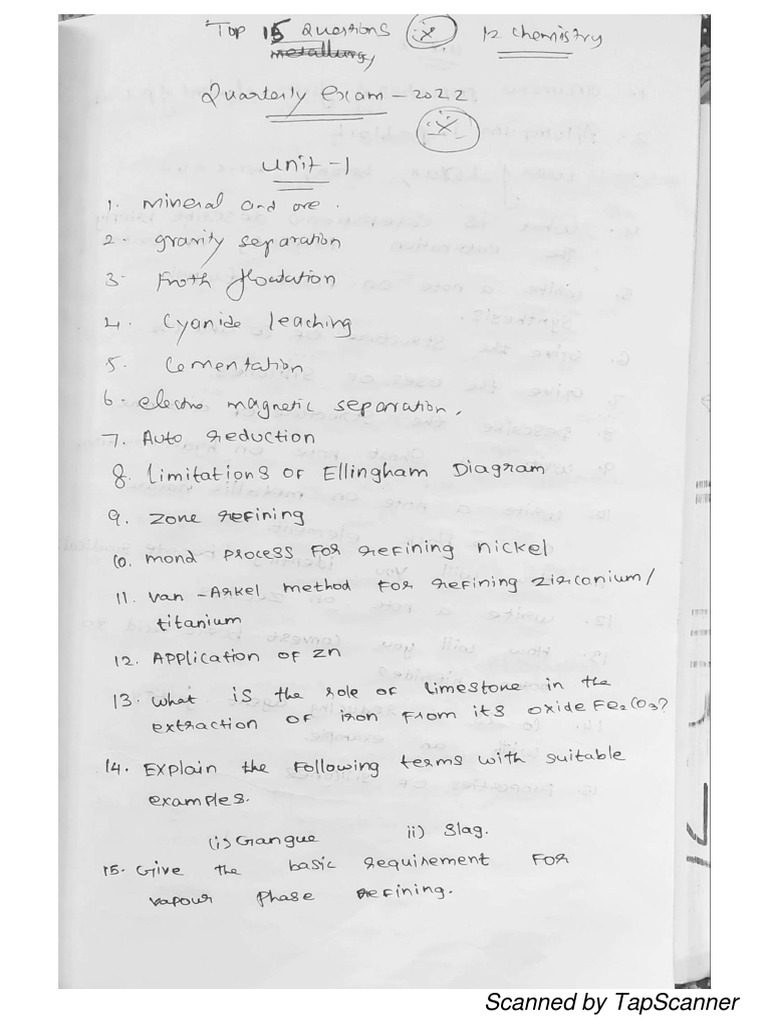 Top 15 Questions 12 chemistry
metallurgy
Quarterly Exam - 2022
unit - 1
1. mineral and ore.
2. gravity separation
3. Froth flowtation
4. Cyanide leaching
5. Cementation
6. electro magnetic separation.
7. Auto reduction
8. Limitations of Ellingham Diagram
9. zone refining
10. mond process for refining nickel
11. van-Arkel method for refining zirconium/
titanium
12. Application of zn
13. what is the role of limestone in the
extraction of iron from its oxide Fe2CO3?
14. Explain the following terms with suitable
examples.
(i) Gangue ii) Slag.
15. Give the basic requirement for
vapour phase refining.
Scanned by TapScanner